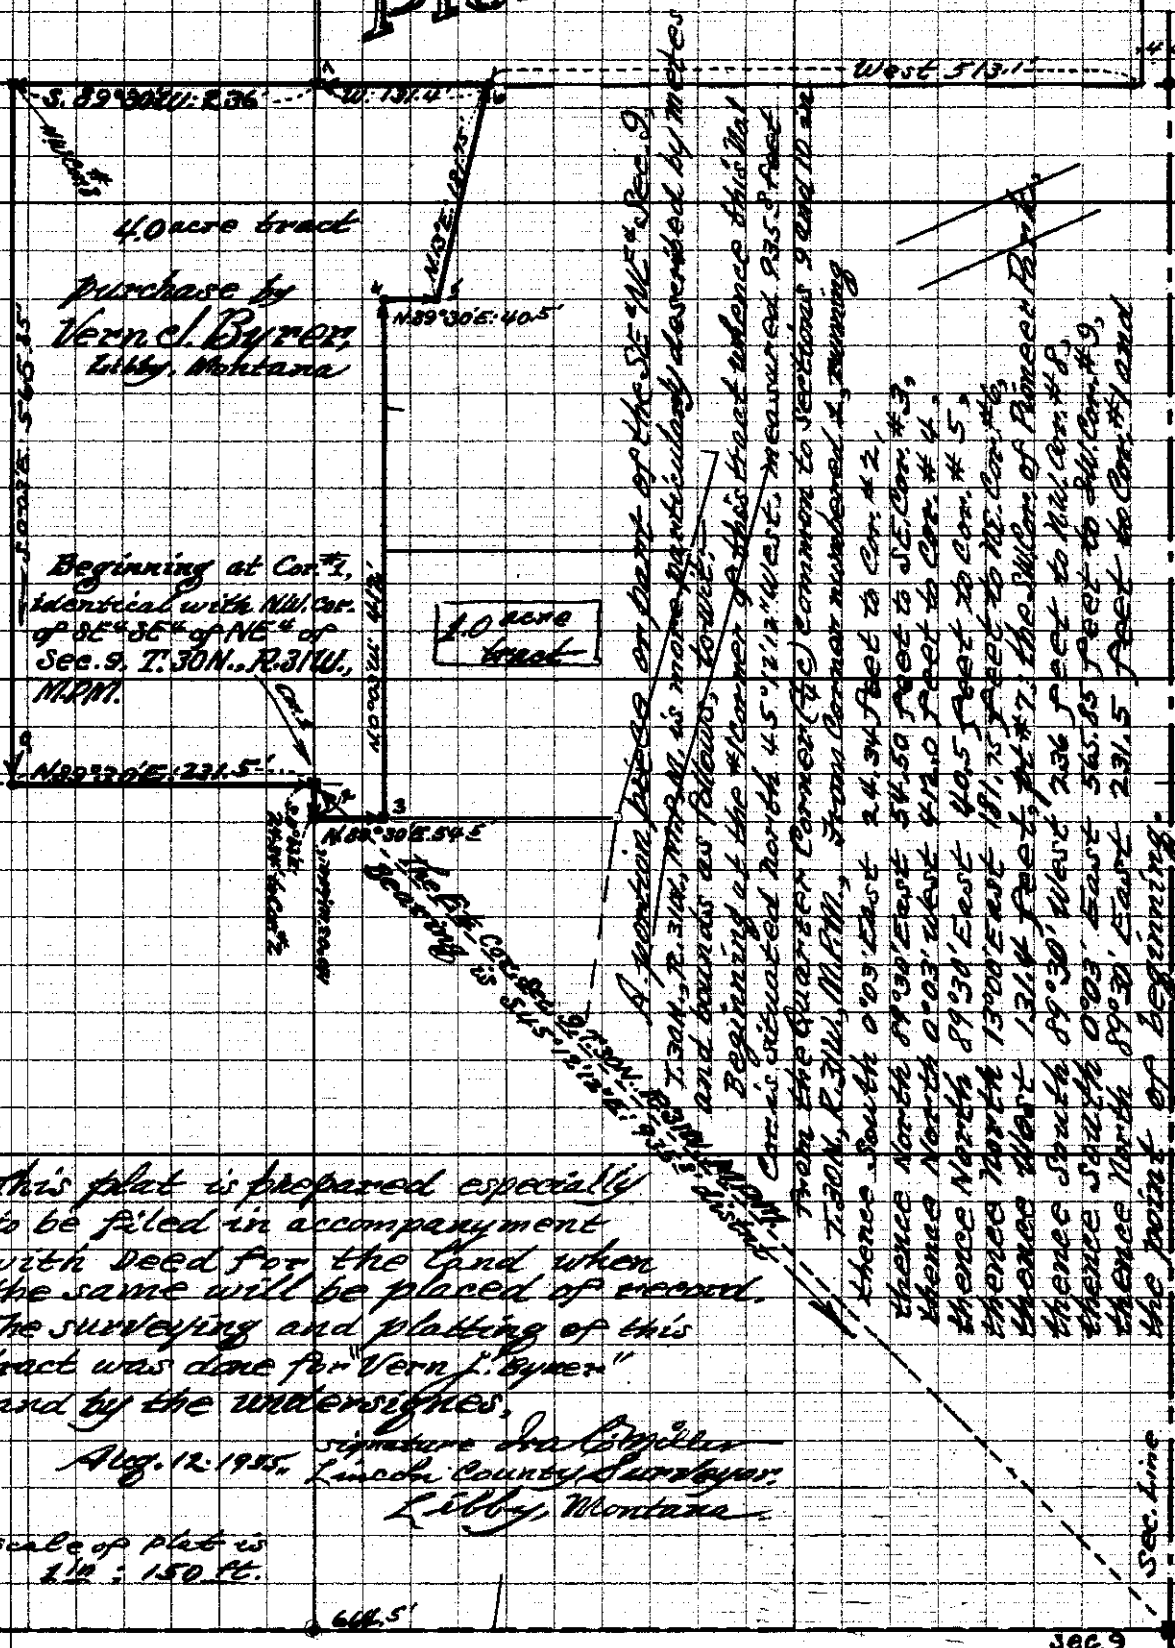 West 513.1'
S. 89°30'W. 236'
W. 131.4'
7
6
N.13°E. 181.75'
4.0 acre tract
purchase by
Vern J. Byrer,
Libby, Montana
4
5
N.89°30'E. 40.5'
S.0°03'E. 565.85'
Beginning at Cor. #1,
identical with N.W. Cor.
of SE4 SE4 of NE4 of
Sec. 9, T. 30N., R.31W.,
M.P.M.
N.0°03'W. 412'
1.0 acre
tract
Cor. 1
9
N.89°30'E. 231.5'
2
3
N.89°30'E. 54.5'
A portion piece on part of the SE4 NE4 Sec. 9,
T.30N., R.31W., M.P.M., is more particularly described by metes
and bounds as follows, to wit:
Beginning at the #1 Corner of this tract whence this Nal
Cor. is situated North 45°12'12" West, measured 935.8 feet
from the Quarter Corner (4c) common to Sections 9 and 10 in
T.30N., R.31W., M.P.M., From Corner numbered 1, running
thence South 0°03' East 24.34 feet to Cor. #2,
thence North 89°30' East 54.50 feet to SE. Cor. #3,
thence North 0°03' West 412.0 feet to Cor. #4,
thence North 89°30' East 40.5 feet to Cor. #5,
thence North 13°00' East 181.75 feet to NE. Cor. #6,
thence West 131.4 feet, pt #7, the SW. Cor. of Pioneer Park,
thence South 89°30' West 236 feet to N.W. Cor. #8,
thence South 0°03' East 565.85 feet to SW. Cor. #9,
thence North 89°30' East 231.5 feet to Cor. #1 and
the point of beginning.
This plat is prepared especially
to be filed in accompanyment
with Deed for the land when
the same will be placed of record.
The surveying and platting of this
tract was done for "Vern J. Byrer"
and by the undersignes,
Aug. 12. 1955.
signature Ira C. Miller
Lincoln County Surveyor.
Libby, Montana
scale of plat is
1 in = 150 ft.
664.5'
Sec. Line
Sec 9